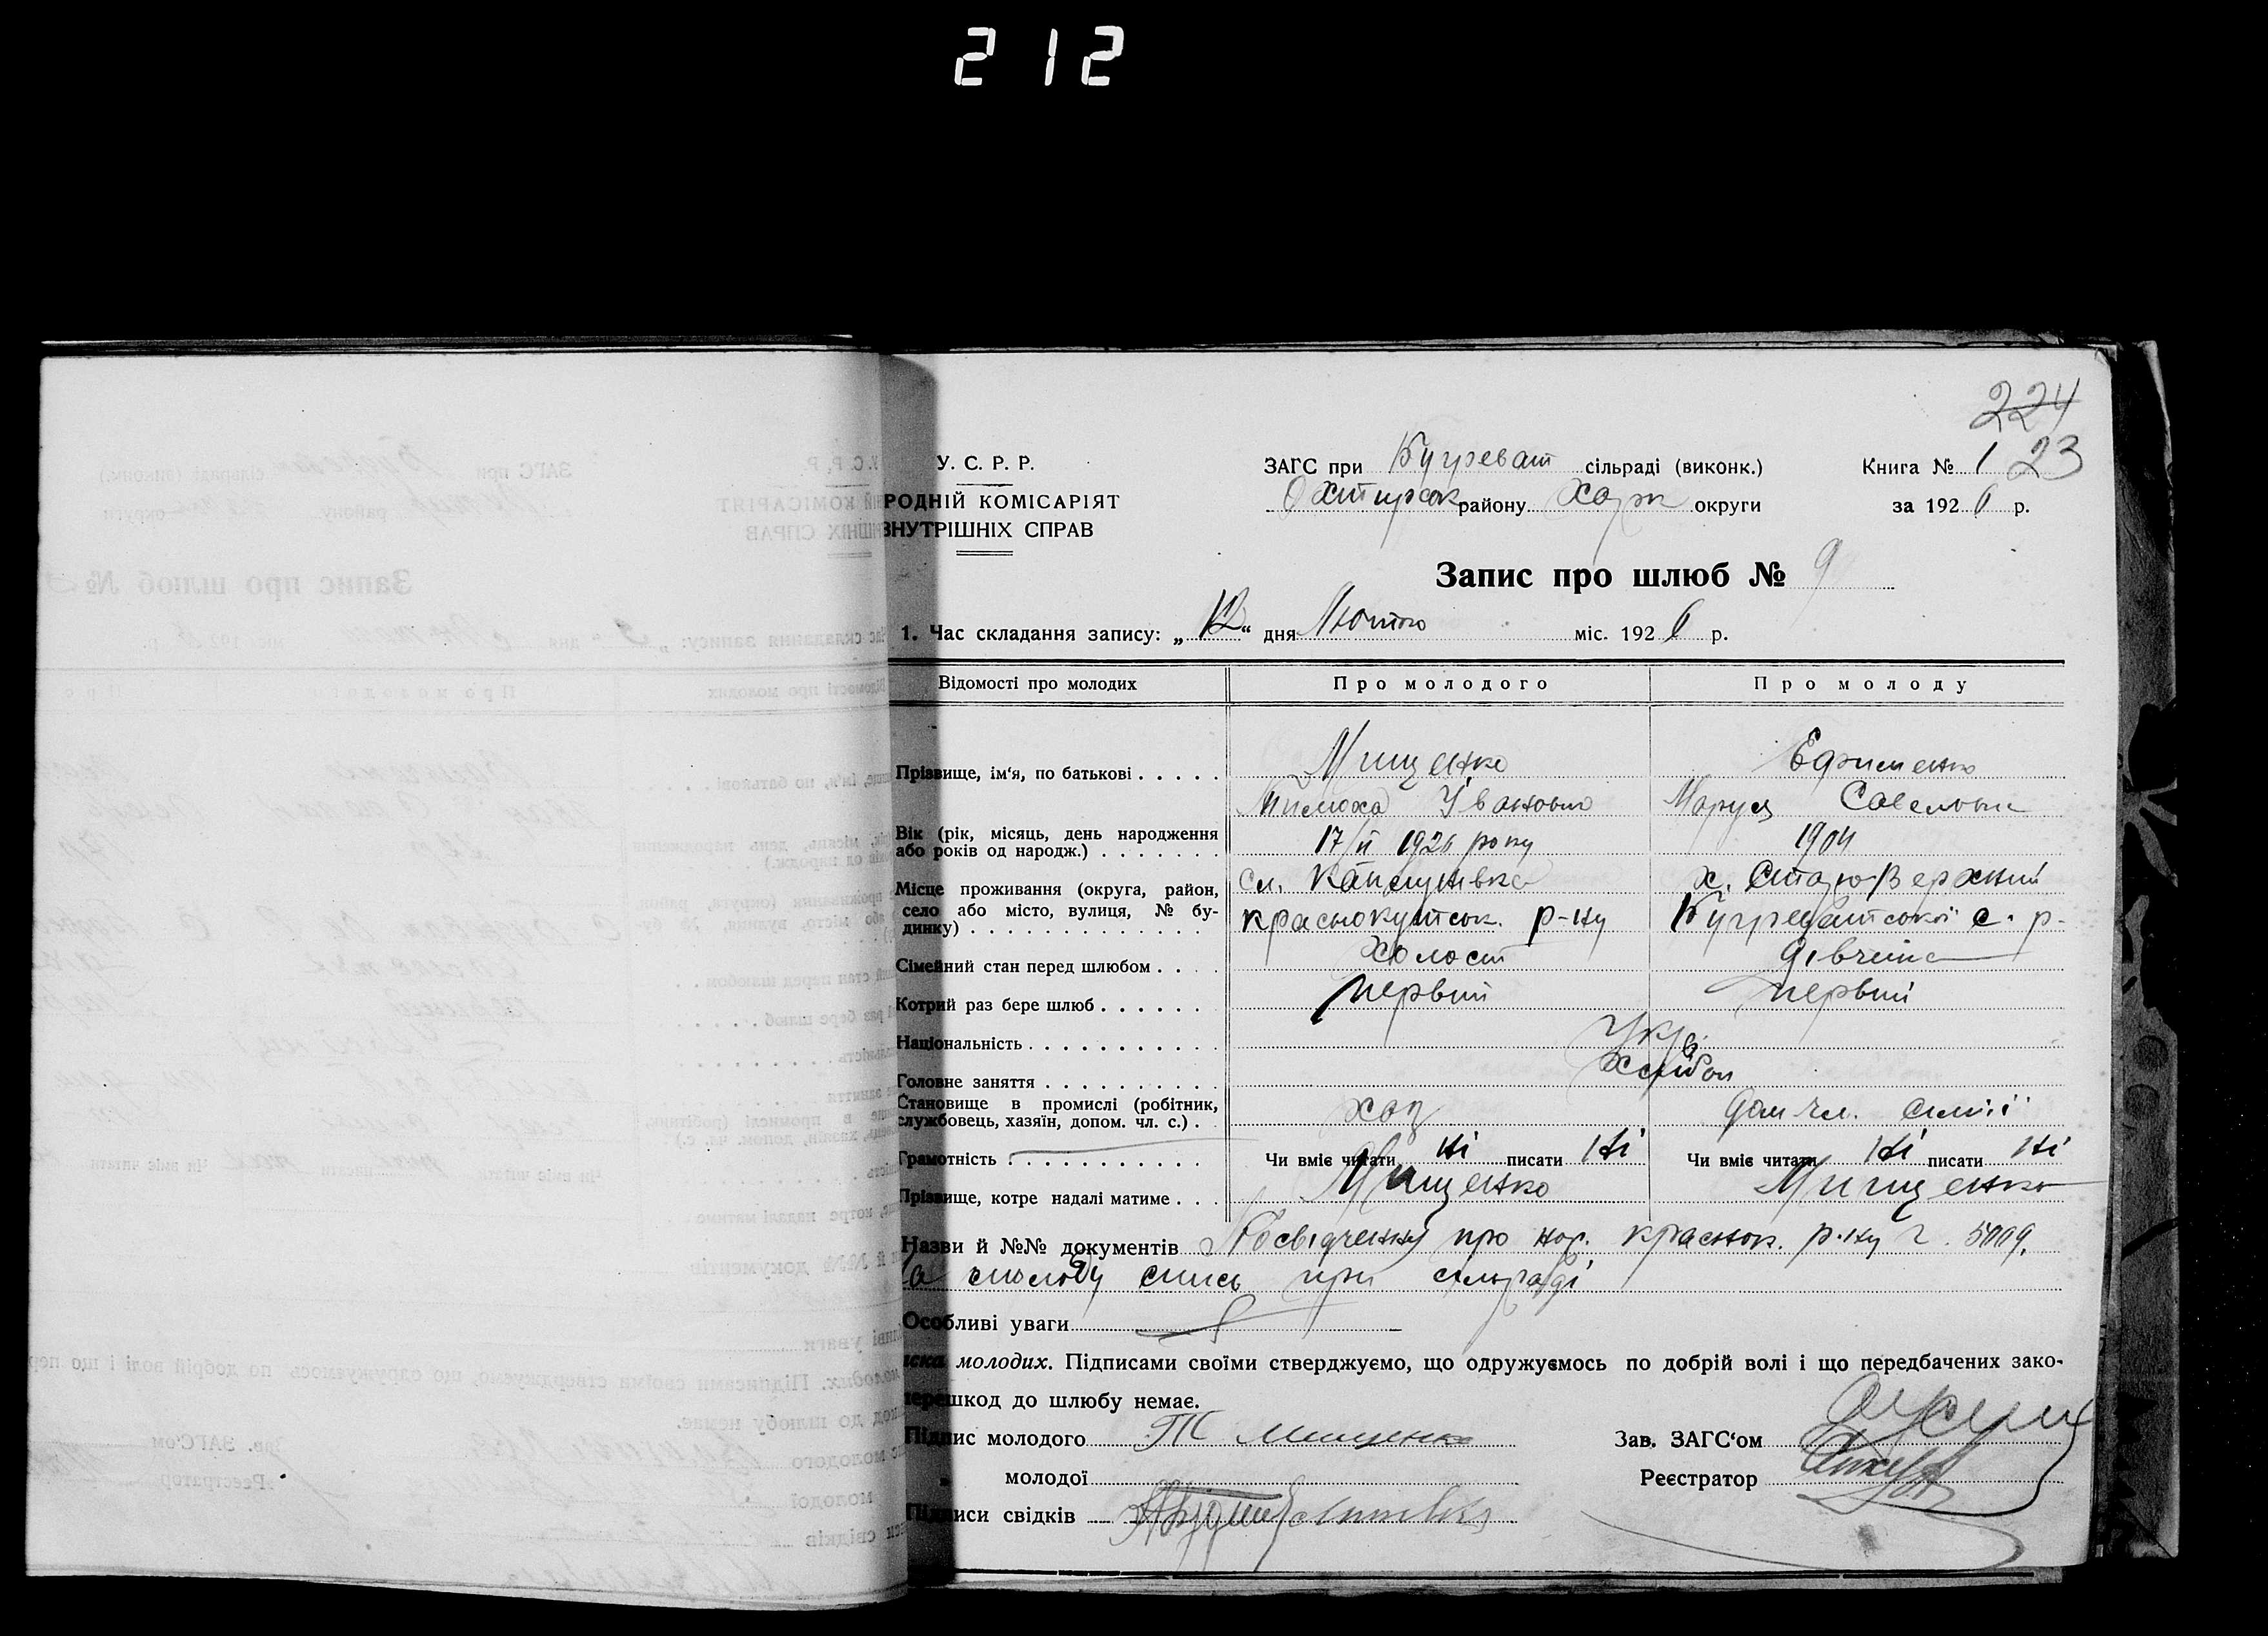 212
224
У. С. Р. Р.
ЗАГС при Бугреват сільраді (виконк.) Книга № 1 23
РОДНІЙ КОМІСАРІЯТ
Охтирськ району Харк округи за 1926 р.
ВНУТРІШНІХ СПРАВ
Запис про шлюб № 9
1. Час складання запису: „12“ дня Лютого міс. 1926 р.
Відомості про молодих Про молодого Про молоду
Прізвище, ім‘я, по батькові . . . . . Мищенко Ефименко
Тимоха Иванович Маруся Савельевна
Вік (рік, місяць, день народження
або років од народж.) . . . . . . . 17/II 1926 року 1904
Місце проживання (округа, район, сл. х.
село або місто, вулиця, № бу- Краснокутськ. р-ну Бугреватської с. р-
динку) . . . . . . . . . . . . .
Сімейний стан перед шлюбом . . . . Холост дівчина
Котрий раз бере шлюб . . . . . . Первий Первий
Національність . . . . . . . . . . . Укр
Головне заняття . . . . . . . . . . Хлібор
Становище в промислі (робітник,
службовець, хазяїн, допом. чл. с.) . хаз чл. сим'ї
Грамотність . . . . . . . . . . . Чи вміє читати ні писати ні Чи вміє читати ні писати ні
Прізвище, котре надалі матиме . . . Мищенко Мищенко
Назви й №№ документів Посвідчення про нар. краснок. р-ну
а молоду при сільраді
Особливі уваги
иска молодих. Підписами своїми стверджуємо, що одружуємось по добрій волі і що передбачених зако-
перешкод до шлюбу немає.
Підпис молодого Т Мищенко Зав. ЗАГС‘ом
„ молодої Реєстратор
Підписи свідків